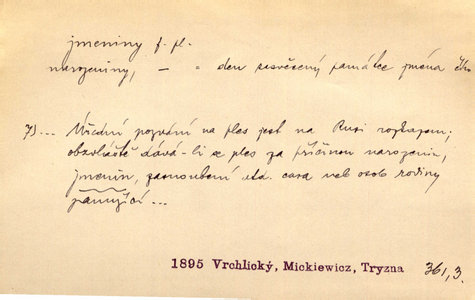 jmeniny f. pl.
narozeniny, – = den zasvěcený památce jména
7) ... Úřední pozvání na ples jest na Rusi rozkazem;
obzvláště dává-li se ples za příčinou narozenin,
jmenin, zasnoubení atd. cara neb osob rodiny
panující ...
1895 Vrchlický, Mickiewicz, Tryzna 361,3.